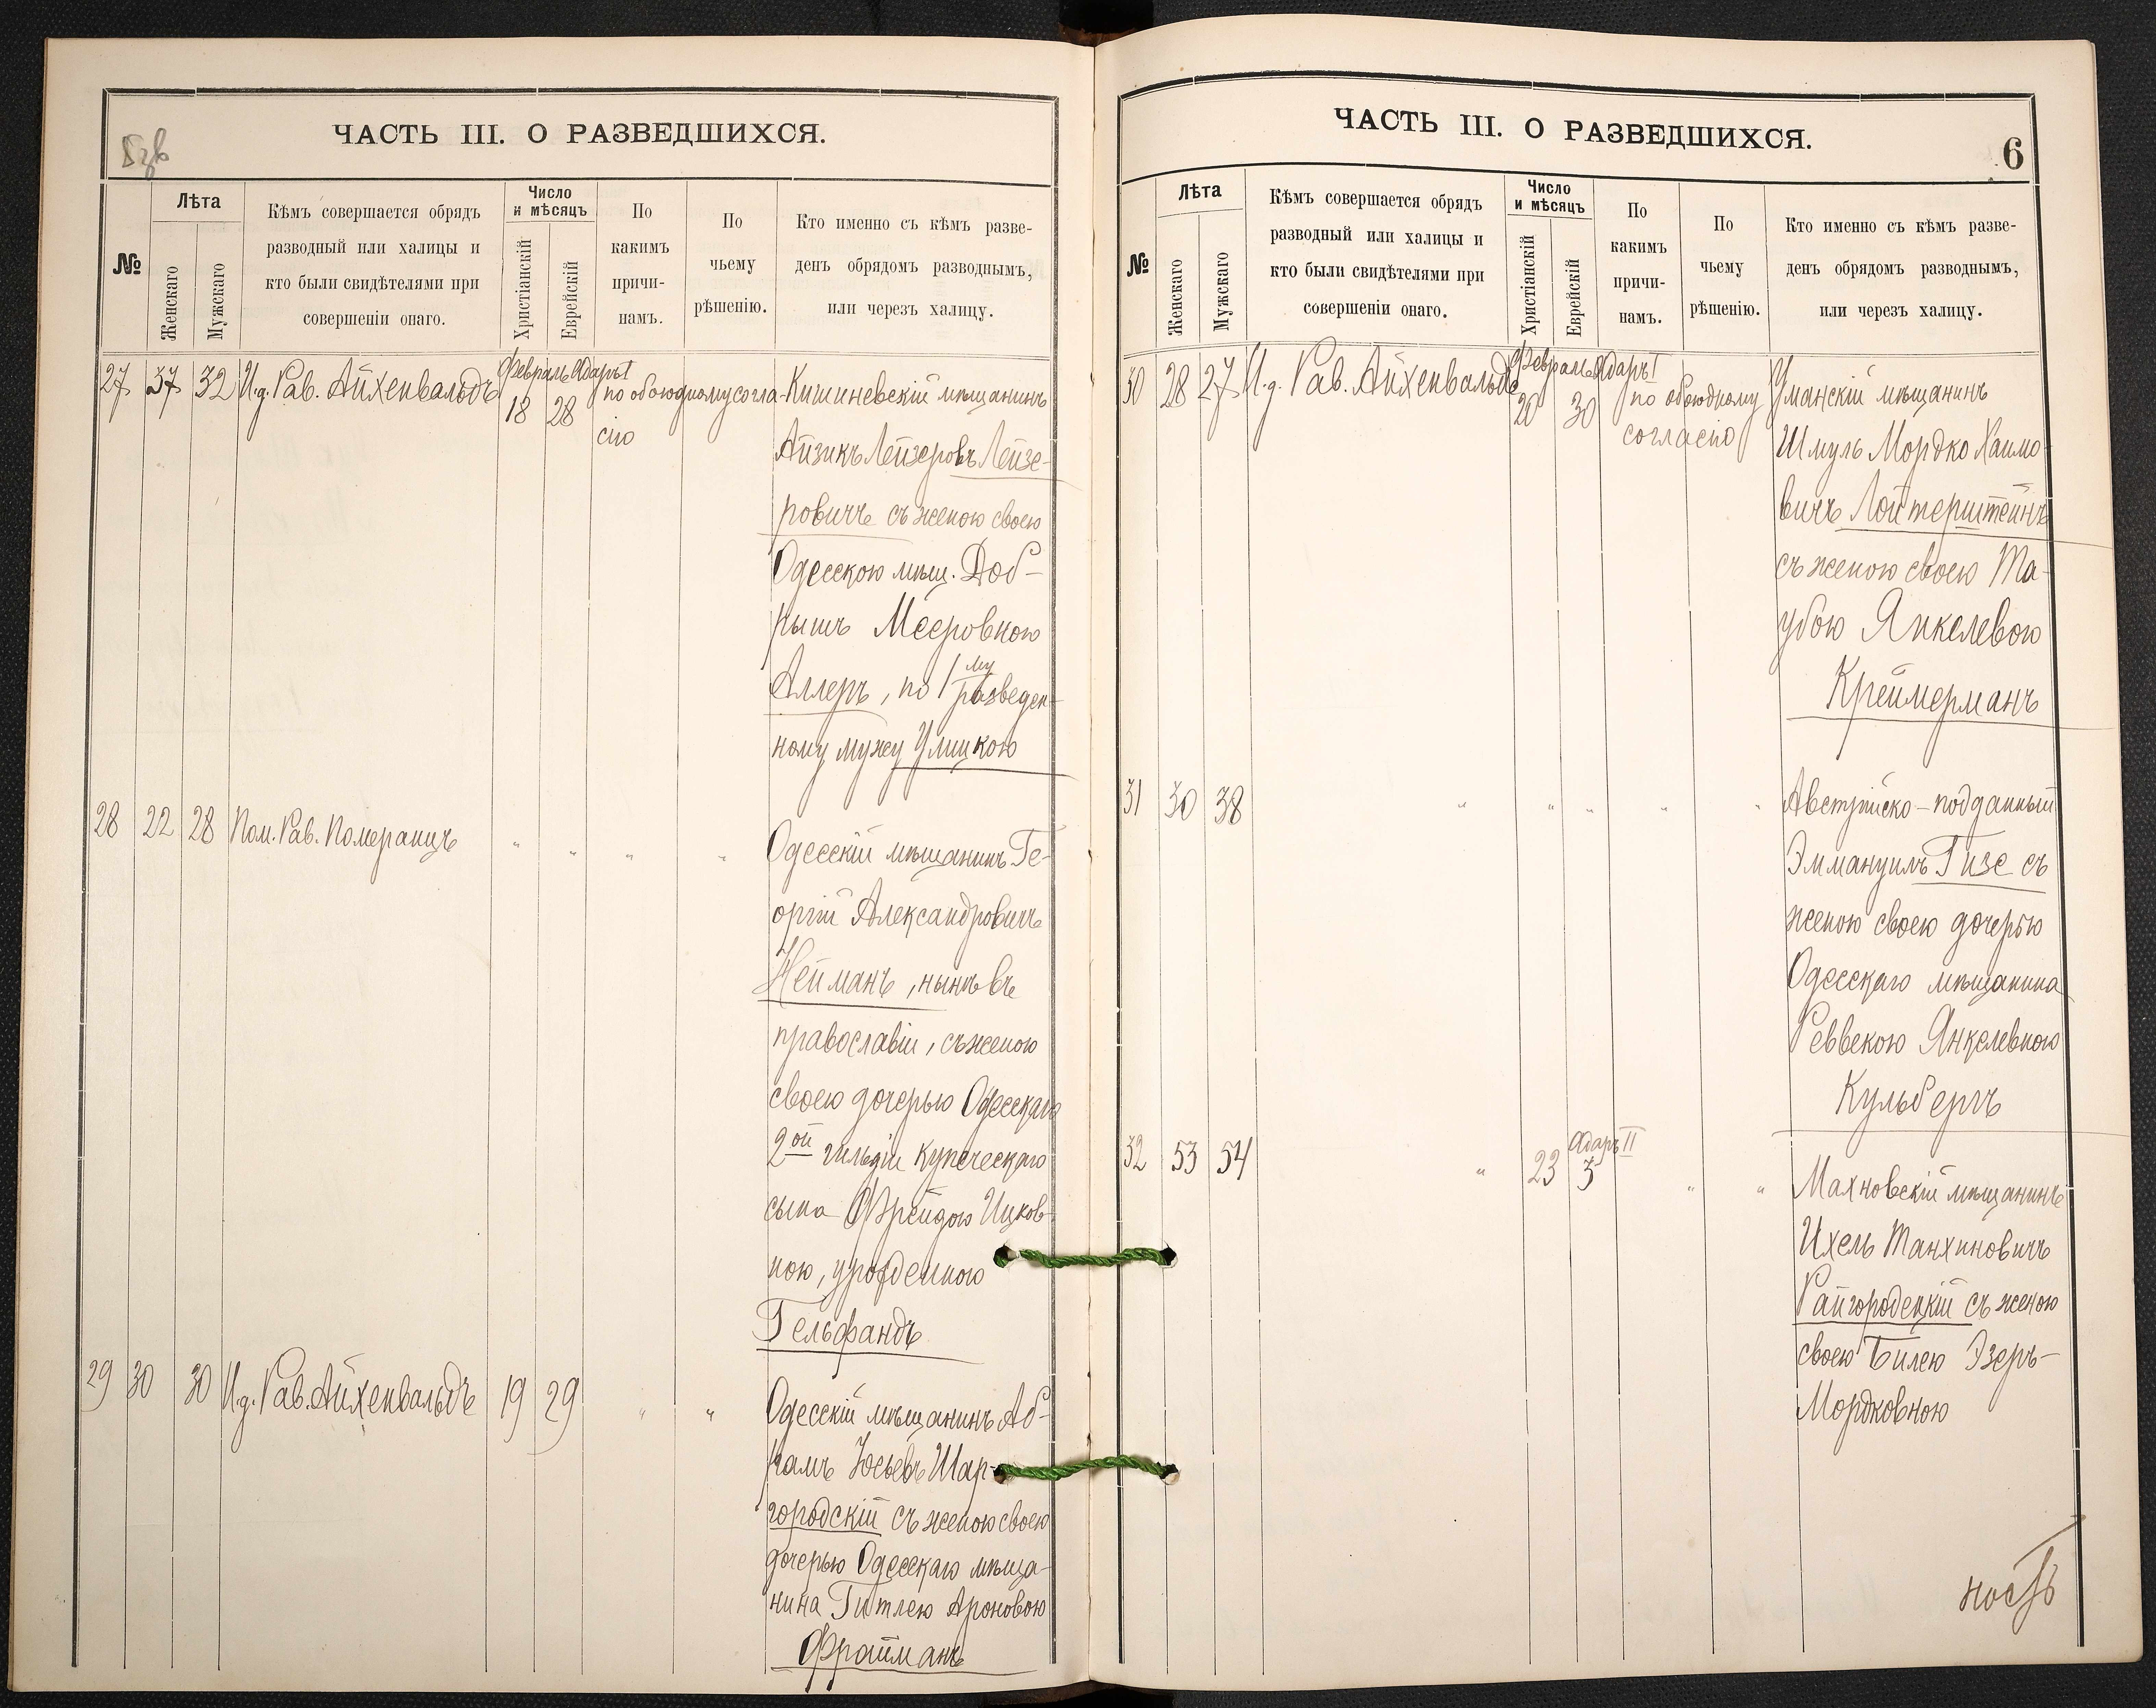 ЧАСТЬ III. О РАЗВЕДШИХСЯ.
№
Лѣта
Женскаго
Мужскаго
Кѣмъ совершается обрядъ
разводный или халицы и
кто были свидѣтелями при
совершеніи онаго.
Число
и мѣсяцъ
Христіанскій
Еврейскій
По
какимъ
причи-
намъ.
По
чьему
рѣшенію.
Кто именно съ кѣмъ разве-
денъ обрядомъ разводнымъ,
или черезъ халицу.
Февраль Адаръ I
27 37 32 И.д. Рав. Айхенвальдъ 18 28 по обоюдному согла-
сію
Кишиневскій мѣщанинъ
Айзикъ Лейзеровъ Лейзе-
ровичъ съ женою своею
Одесскою мѣщ. Доб-
рышъ Мееровною
Аллеръ, по 1му разведен-
ному мужу Улицкою
28 22 28 Пом. Рав. Померанцъ " " " "
Одесскій мѣщанинъ Ге-
оргій Александровичъ
Нейманъ, нынѣ въ
православіи, съ женою
своею дочерью Одесскаго
2ой гильдіи купеческаго
сына Фрейдою Ицков-
ною, урожденною
Гельфандъ
29 30 30 И.д. Рав. Айхенвальдъ 19 29 " "
Одесскій мѣщанинъ Аб-
рамъ Юсьевъ Шар-
городскій съ женою своею
дочерью Одесскаго мѣща-
нина Гитлею Ароновою
Фрайманъ
ЧАСТЬ III. О РАЗВЕДШИХСЯ.
6
№
Лѣта
Женскаго
Мужскаго
Кѣмъ совершается обрядъ
разводный или халицы и
кто были свидѣтелями при
совершеніи онаго.
Число
и мѣсяцъ
Христіанскій
Еврейскій
По
какимъ
причи-
намъ.
По
чьему
рѣшенію.
Кто именно съ кѣмъ разве-
денъ обрядомъ разводнымъ,
или черезъ халицу.
Февраль Адаръ I
30 28 27 И.д. Рав. Айхенвальдъ 20 30 по обоюдному
согласію
Уманскій мѣщанинъ
Шмуль Мордко Хаимо-
вичъ Лойтерштейнъ
съ женою своею Та-
убою Янкелевою
Креймерманъ
31 30 38 " " " " "
Австрійско-подданный
Эммануилъ Гизе съ
женою своею дочерью
Одесскаго мѣщанина
Реввекою Янкелевною
Кульбергъ
Адаръ II
32 53 54 " 23 3 " "
Махновскій мѣщанинъ
Ихель Танхиновичъ
Райгородецкій съ женою
своею Билею Эзеръ-
Мордковною
ность